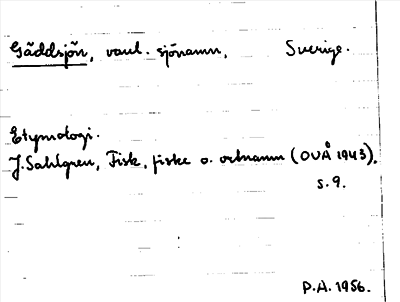 Gäddsjön, vanl. sjönamn, Sverige.
Etymologi.
J. Sahlgren, Fisk, fiske o. ortnamn (OUÅ 1943),
s. 9.
P.A. 1956.